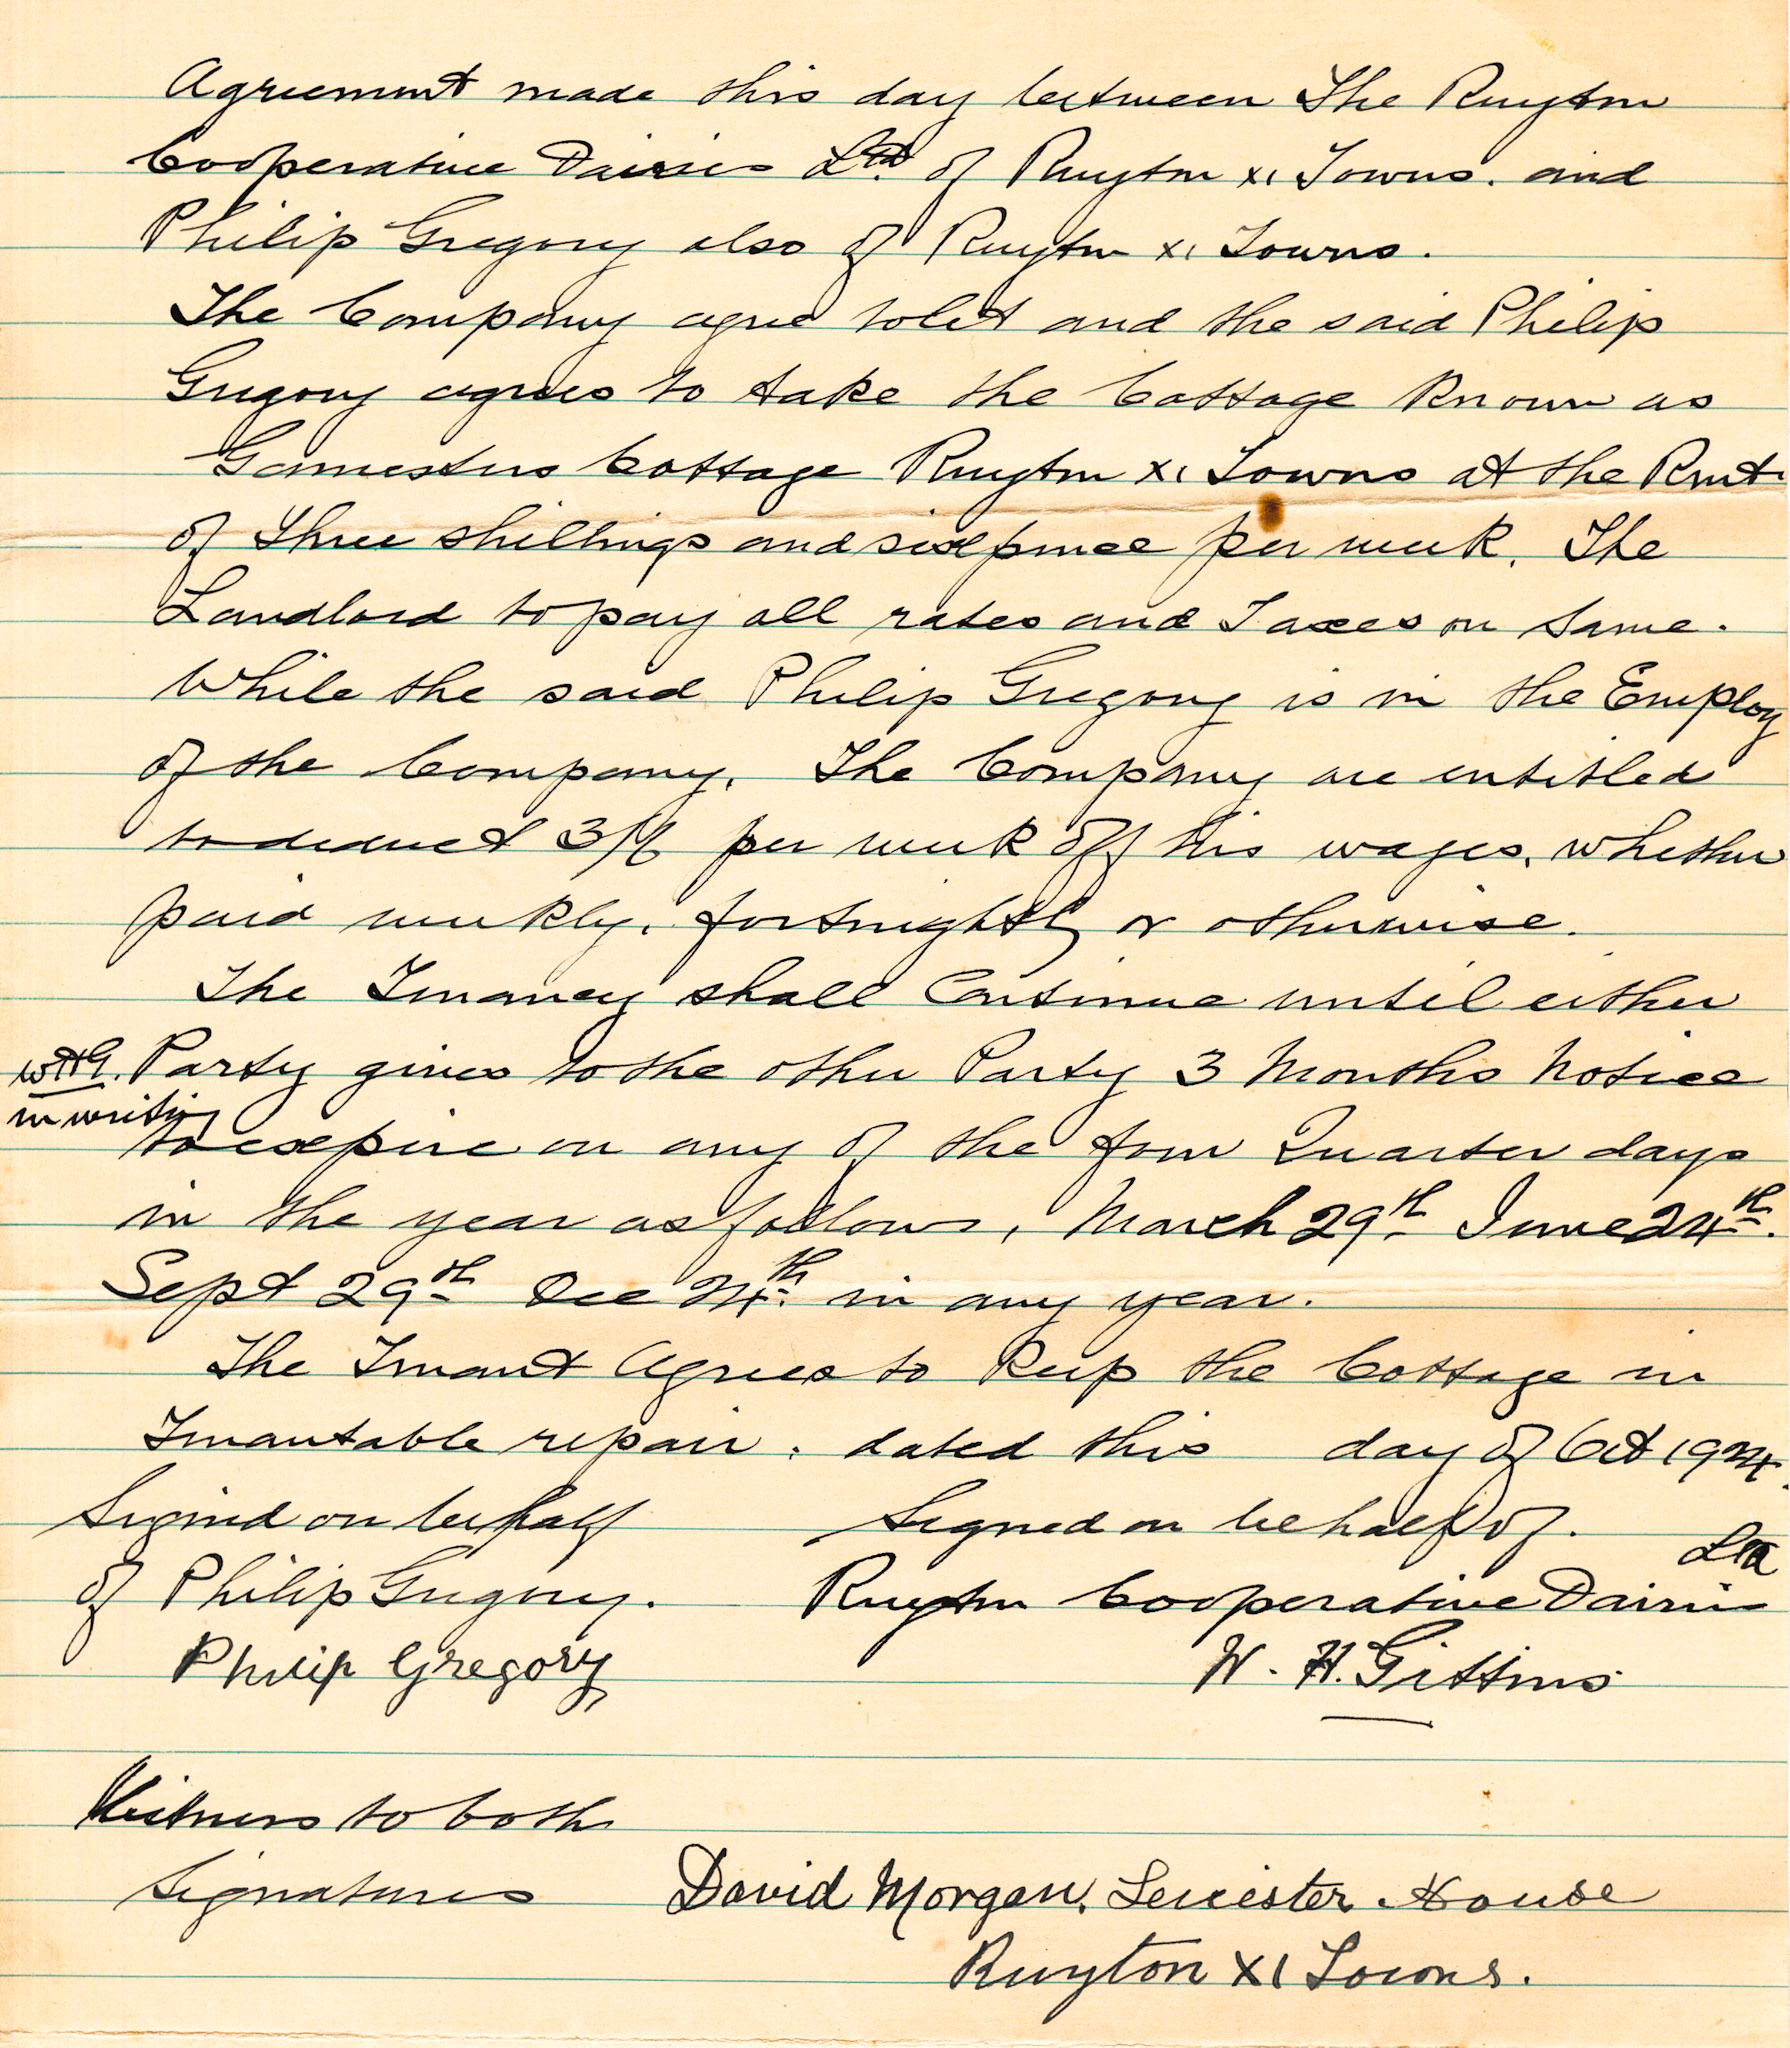 Agreement made this day between The Ruyton
Cooperative Dairies Ltd. of Ruyton XI Towns. and
Philip Gregory also of Ruyton XI Towns.
The Company agree to let and the said Philip
Gregory agrees to take the Cottage Known as
Cottage Ruyton XI Towns at the Rent.
of three shillings and sixpence per week. The
Landlord to pay all rates and Taxes on same.
While the said Philip Gregory is in the Employ
of the Company. The Company are entitled
to deduct 3/6 per week off his wages, whether
paid weekly, fortnightly or otherwise.
The Tenancy shall Continue until either
W.H.G. Party gives to the other Party 3 Months Notice
in writing
to expire on any of the four Quarter days
in the year as follows, March 29th June 24th.
Sept 29th Dec 24th. in any year.
The Tenant Agrees to Keep the Cottage in
Tenantable repair. dated this day of Oct 1924.
Signed on behalf
of Philip Gregory.
Philip Gregory
Signed on behalf of.
Ruyton Cooperative Dairies Ltd
W. H. Gittins
Witness to both
Signatures
David Morgan. Leicester House
Ruyton XI Towns.